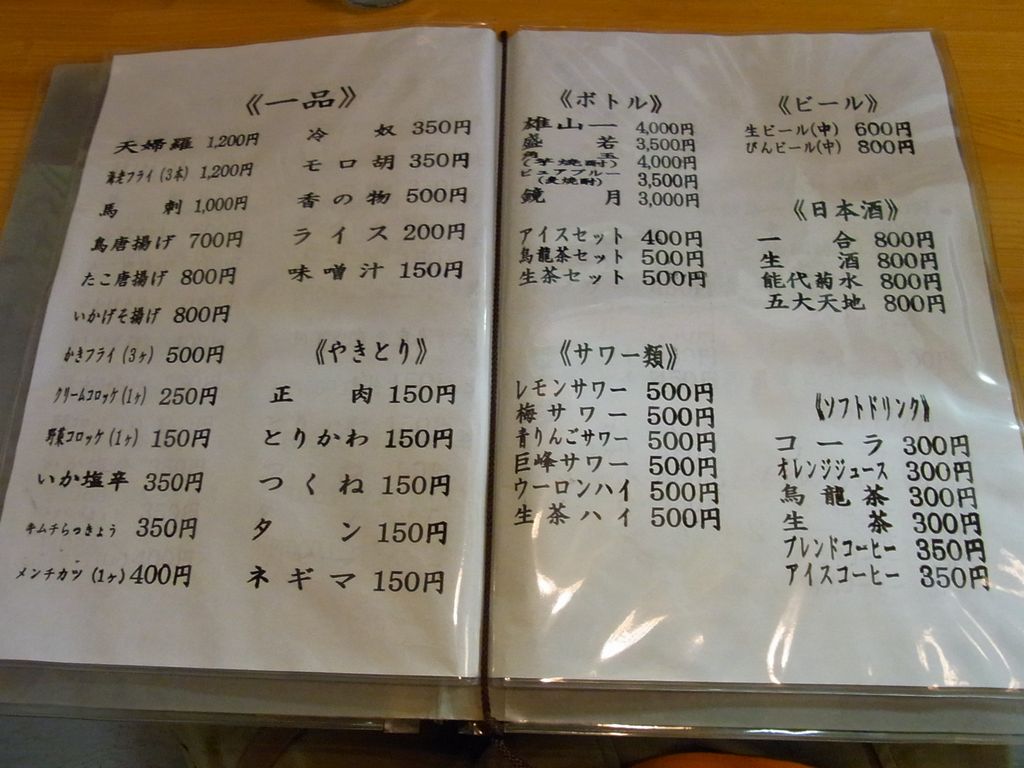 《一品》
天婦羅 1,200円
海老フライ(3本) 1,200円
馬刺 1,000円
鳥唐揚げ 700円
たこ唐揚げ 800円
いかげそ揚げ 800円
かきフライ(3ヶ) 500円
クリームコロッケ(1ヶ) 250円
野菜コロッケ(1ヶ) 150円
いか塩辛 350円
キムチらっきょう 350円
メンチカツ(1ヶ) 400円
冷奴 350円
モロ胡 350円
香の物 500円
ライス 200円
味噌汁 150円
《やきとり》
正肉 150円
とりかわ 150円
つくね 150円
タン 150円
ネギマ 150円
《ボトル》
雄山一 4,000円
盛若 3,500円
(芋焼酎) 4,000円
ピュアブルー(麦焼酎) 3,500円
鏡月 3,000円
アイスセット 400円
烏龍茶セット 500円
生茶セット 500円
《サワー類》
レモンサワー 500円
梅サワー 500円
青りんごサワー 500円
巨峰サワー 500円
ウーロンハイ 500円
生茶ハイ 500円
《ビール》
生ビール(中) 600円
びんビール(中) 800円
《日本酒》
一合 800円
生酒 800円
能代菊水 800円
五大天地 800円
《ソフトドリンク》
コーラ 300円
オレンジジュース 300円
烏龍茶 300円
生茶 300円
ブレンドコーヒー 350円
アイスコーヒー 350円